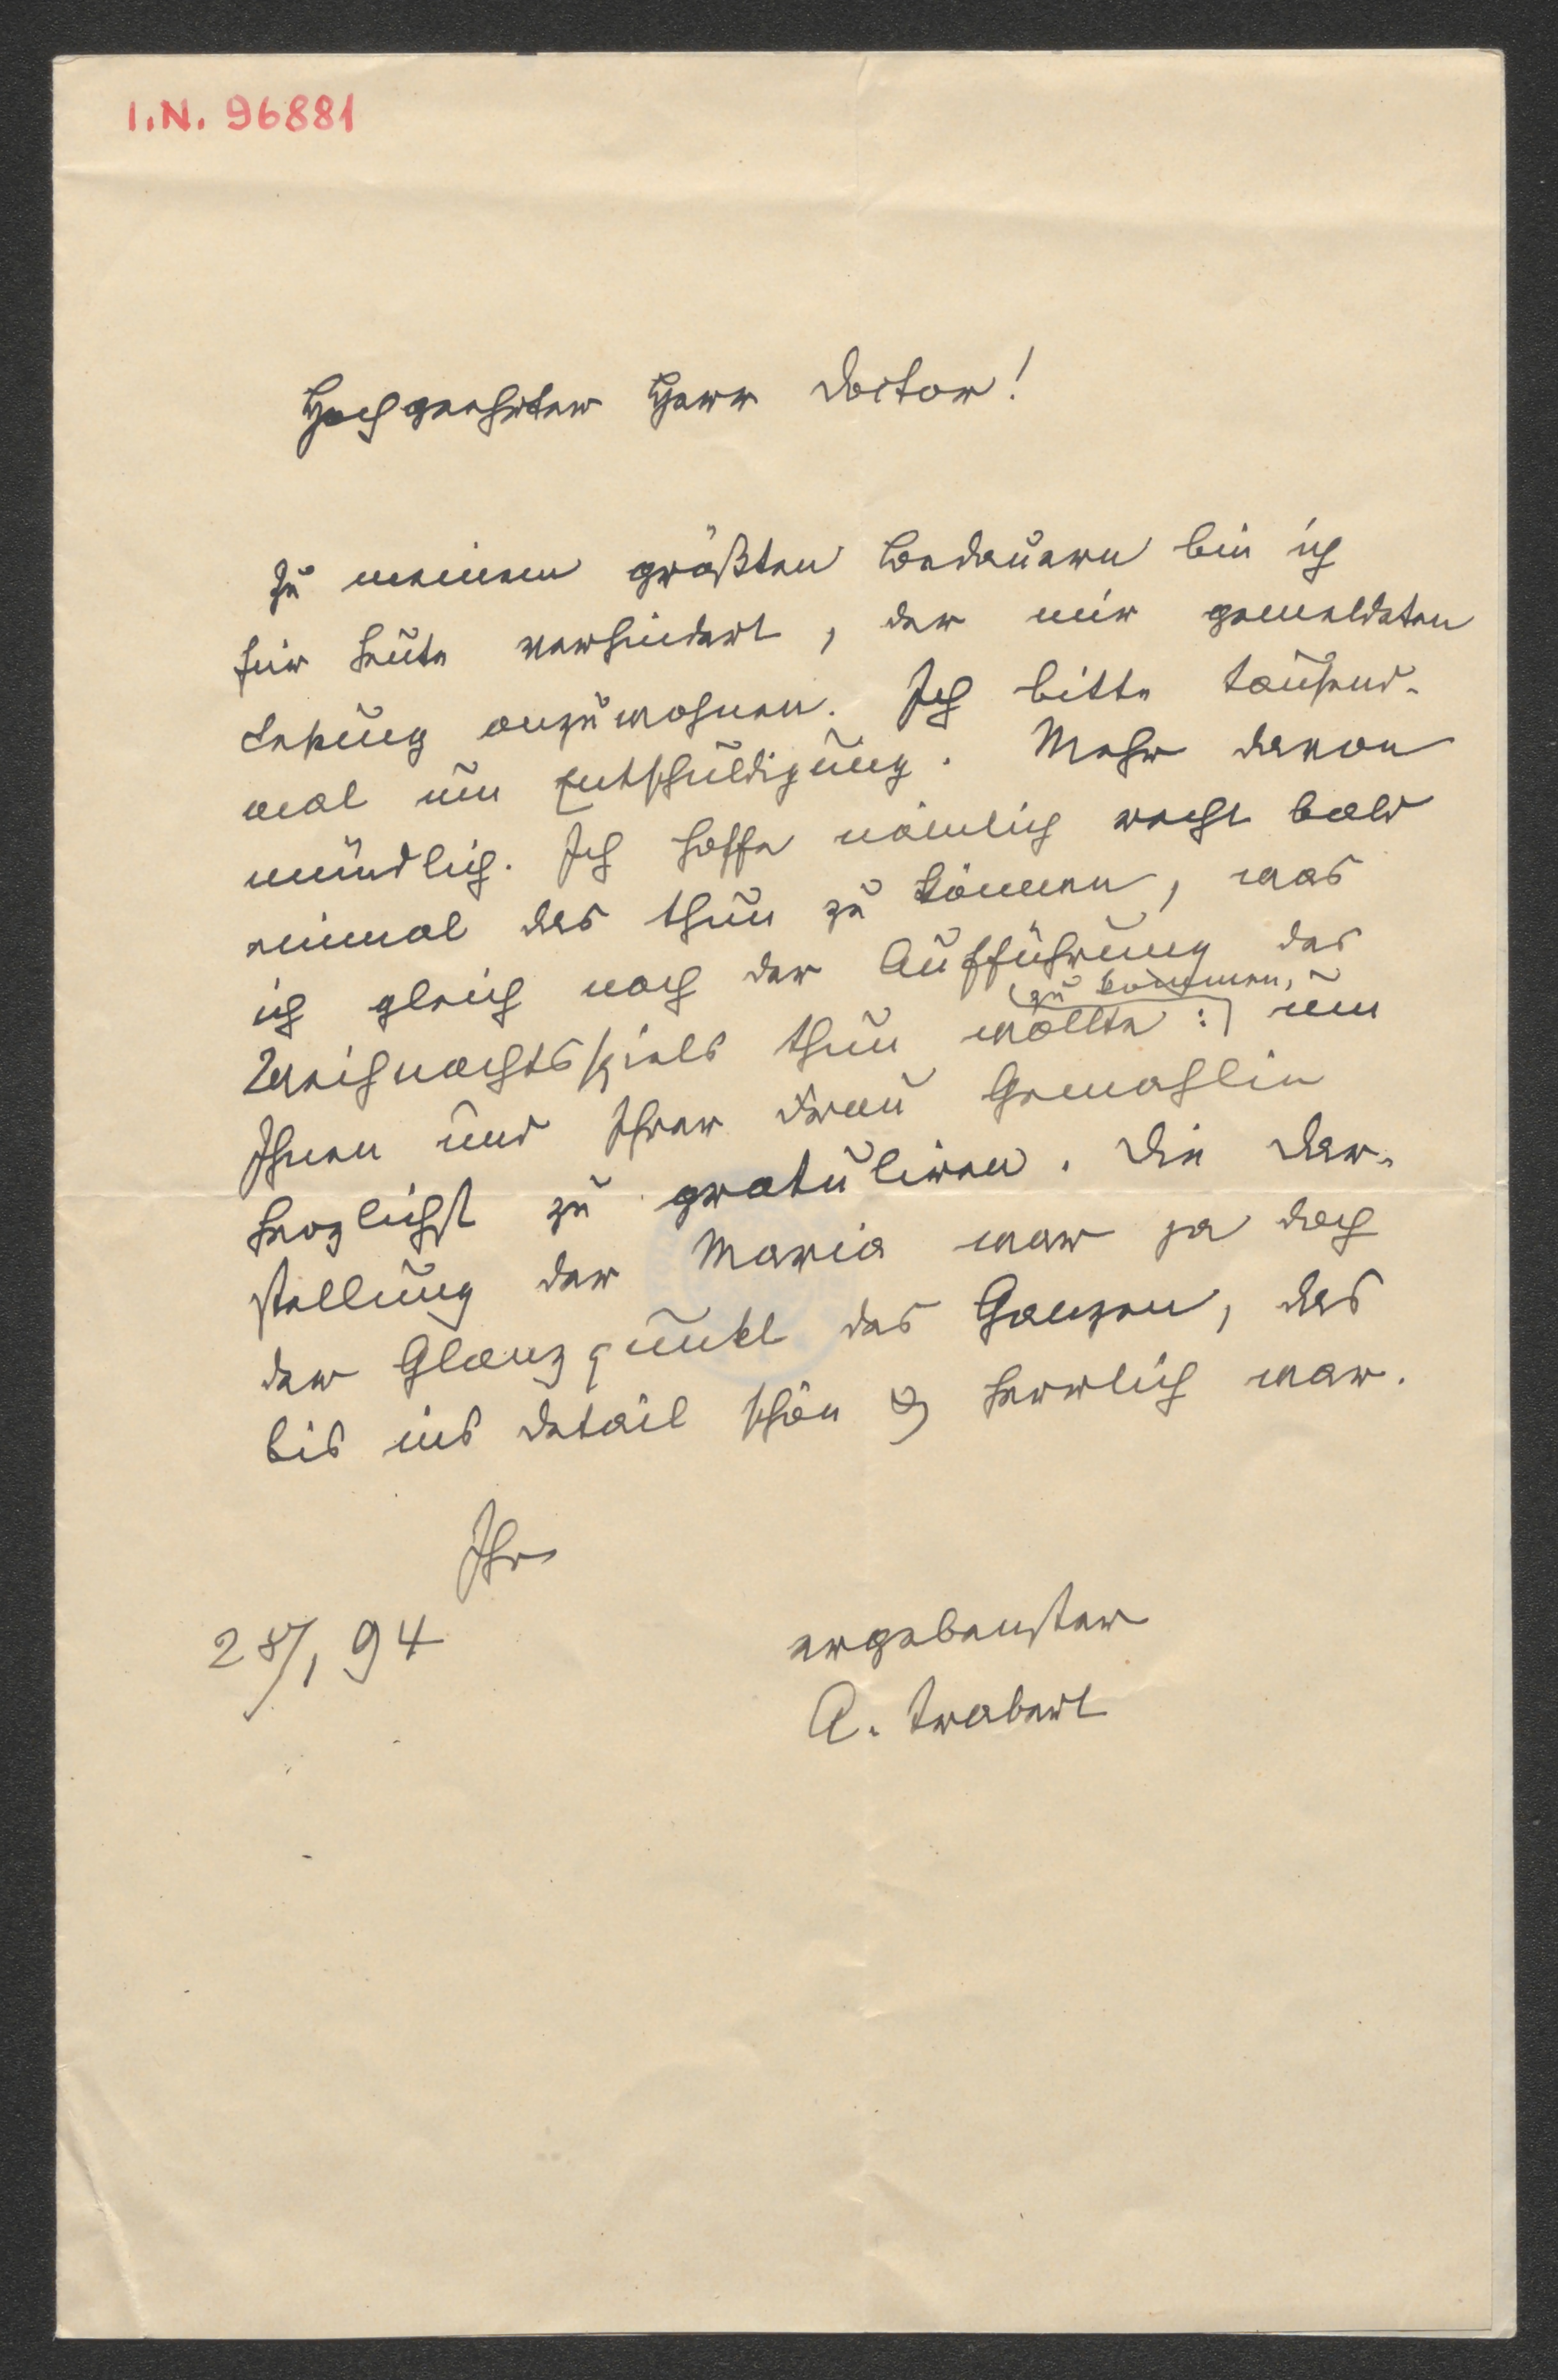 I.N. 96881
Hochgeehrter Herr Doctor!
Zu meinem größten Bedauern bin ich
für heute verhindert, der mir gemeldeten
Lesung anzuwohnen. Ich bitte tausend-
mal um Entschuldigung. Mehr davon
mündlich. Ich hoffe nämlich recht bald
einmal das thun zu können, was
ich gleich nach der Aufführung des
zu kommen,
Weihnachtsspiels thun wollte: um
Ihnen und Ihrer Frau Gemahlin
herzlichst zu gratuliren. Die Dar-
stellung der Maria war ja doch
der Glanzpunkt des Ganzen, das
bis ins Detail schön & herrlich war.
Ihr
28/1 94
ergebenster
A. Trabert